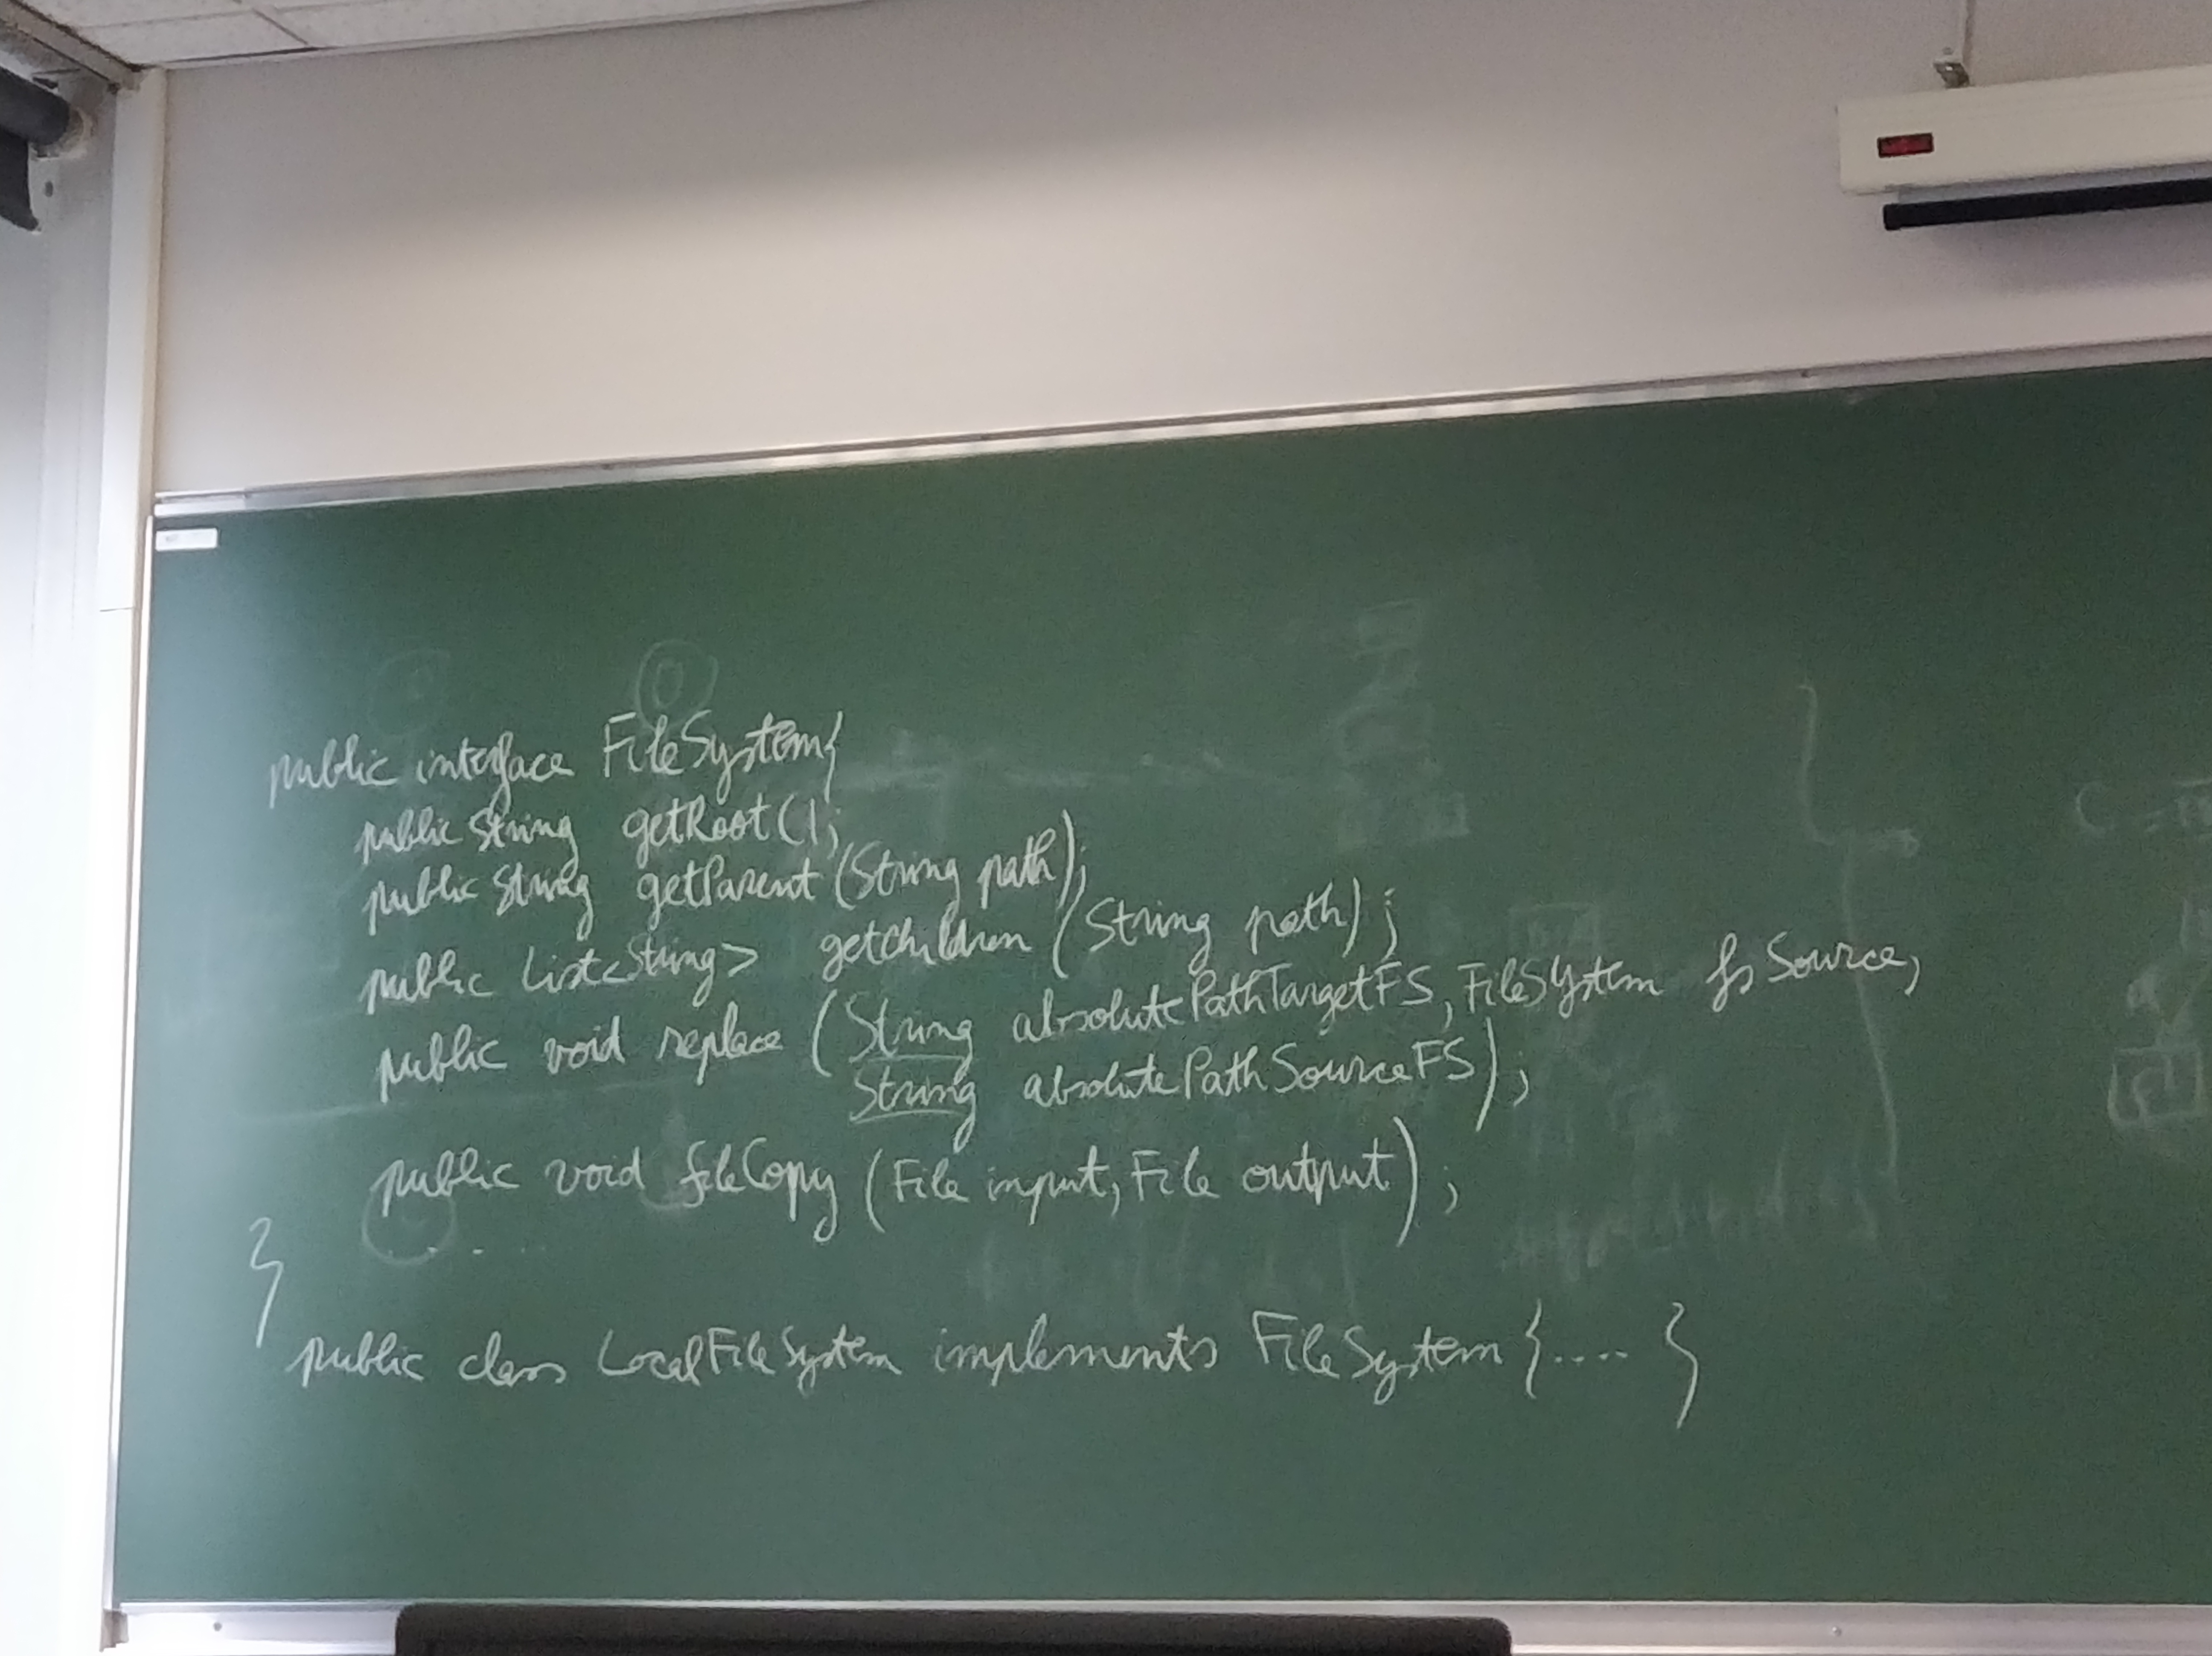 public interface FileSystem{
public String getRoot();
public String getParent(String path);
public List<String> getChildren (String path);
public void replace (String absolutePathTargetFS, FileSystem fsSource,
String absolutePathSourceFS);
public void fileCopy (File input, File output);
.....
}
public class LocalFileSystem implements FileSystem {.... }
C =